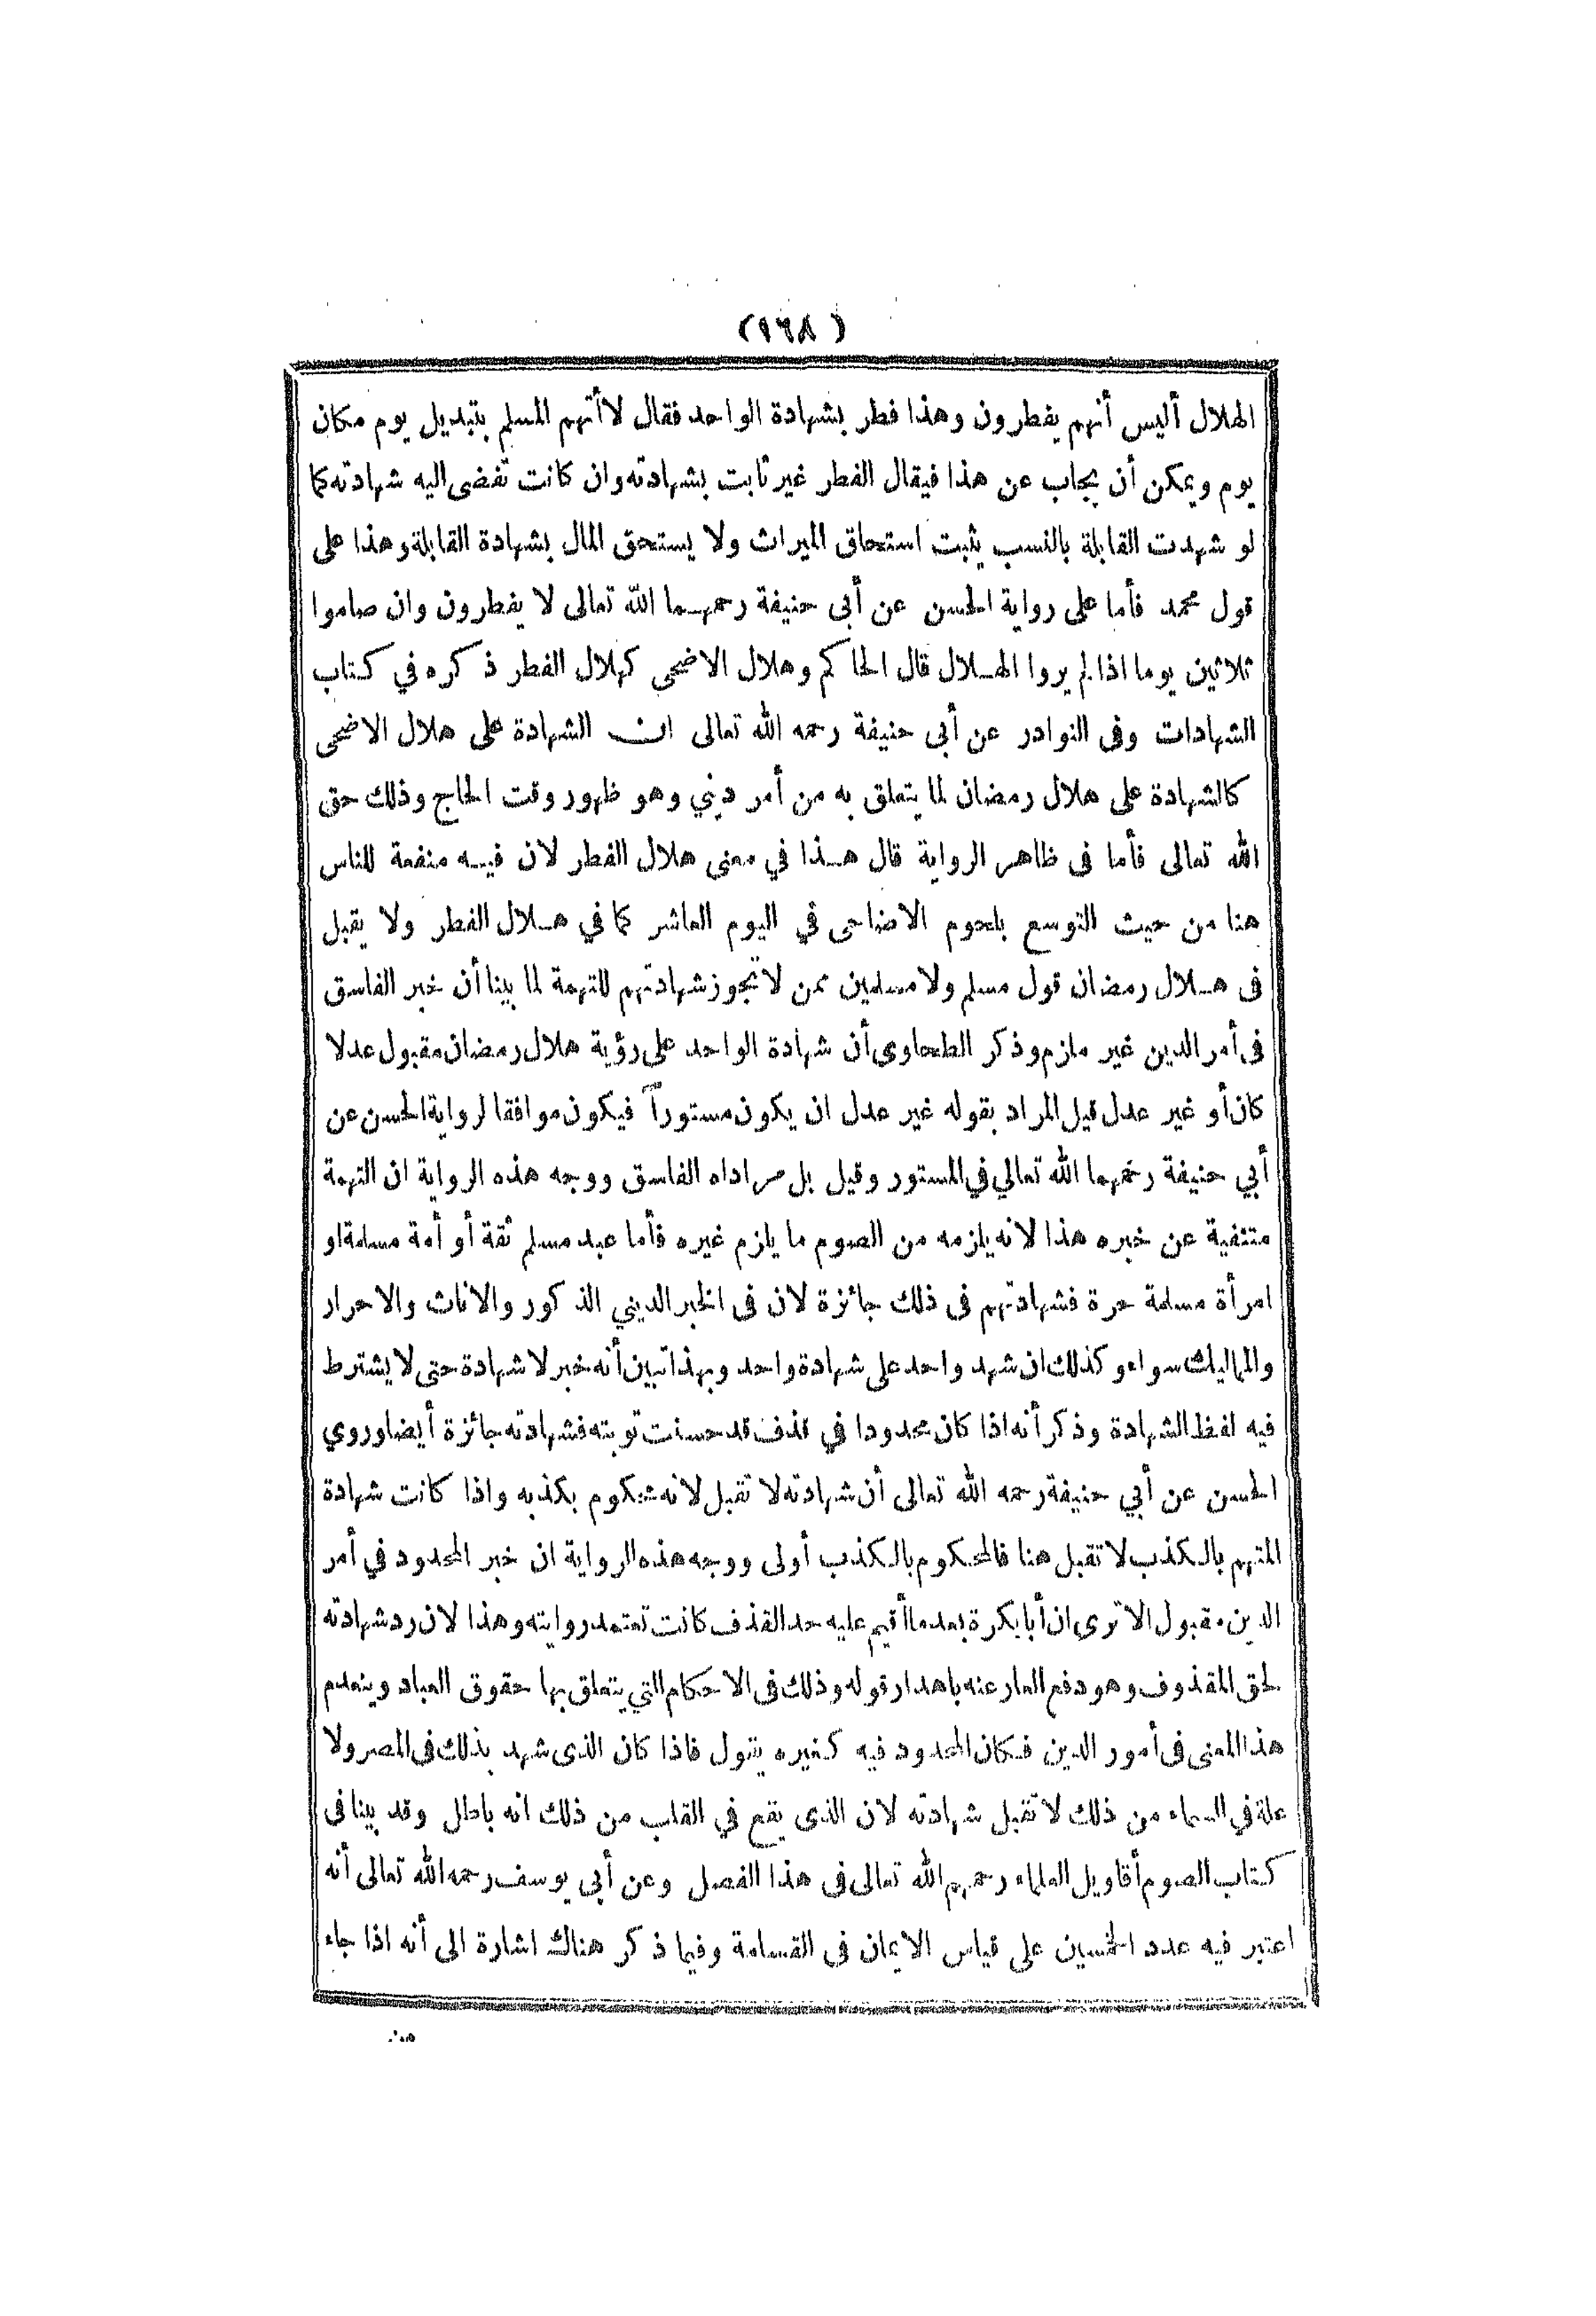 (١٦٨)
الهلال أليس أنهم يفطرون وهذا فطر بشهادة الواحد فقال لا أتهم المسلم بتبديل يوم مكان
يوم ويمكن أن يجاب عن هذا فيقال الفطر غير ثابت بشهادته وان كانت تفضى اليه شهادته كما
لو شهدت القابلة بالنسب يثبت استحقاق الميراث ولا يستحق المال بشهادة القابلة وهذا على
قول محمد فأما على رواية الحسن عن أبى حنيفة رحمهما الله تعالى لا يفطرون وان صاموا
ثلاثين يوما اذا لم يروا الهلال قال الحاكم وهلال الاضحى كهلال الفطر ذكره في كتاب
الشهادات وفى النوادر عن أبى حنيفة رحمه الله تعالى ان الشهادة على هلال الاضحى
كالشهادة على هلال رمضان لما يتعلق به من أمر ديني وهو ظهور وقت الحاج وذلك حق
الله تعالى فأما فى ظاهر الرواية قال هذا في معنى هلال الفطر لان فيه منفعة للناس
هنا من حيث التوسع بلحوم الاضاحى في اليوم العاشر كما في هلال الفطر ولا يقبل
فى هلال رمضان قول مسلم ولا مسلمين ممن لا تجوز شهادتهم للتهمة لما بينا أن خبر الفاسق
فى أمر الدين غير ملزم وذكر الطحاوى أن شهادة الواحد على رؤية هلال رمضان مقبول عدلا
كان أو غير عدل قيل المراد بقوله غير عدل ان يكون مستوراً فيكون موافقا لرواية الحسن عن
أبي حنيفة رحمهما الله تعالي في المستور وقيل بل مراده الفاسق ووجه هذه الرواية ان التهمة
منتفية عن خبره هذا لانه يلزمه من الصوم ما يلزم غيره فأما عبد مسلم ثقة أو أمة مسلمة او
امرأة مسلمة حرة فشهادتهم فى ذلك جائزة لان فى الخبر الديني الذكور والاناث والاحرار
والمماليك سواء وكذلك ان شهد واحد على شهادة واحد وبهذا تبين أنه خبر لا شهادة حتى لا يشترط
فيه لفظ الشهادة وذكر أنه اذا كان محدودا في قذف قد حسنت توبته فشهادته جائزة أيضا وروي
الحسن عن أبي حنيفة رحمه الله تعالى أن شهادته لا تقبل لانه محكوم بكذبه واذا كانت شهادة
المتهم بالكذب لا تقبل هنا فالمحكوم بالكذب أولى ووجه هذه الرواية ان خبر المحدود في أمر
الدين مقبول الا ترى ان أبا بكرة بعد ما أقيم عليه حد القذف كانت تعتمد روايته وهذا لان رد شهادته
لحق المقذوف وهو دفع العار عنه باهدار قوله وذلك فى الاحكام التي يتعلق بها حقوق العباد وينعدم
هذا المعنى فى أمور الدين فكان المحدود فيه كغيره يقول فاذا كان الذى شهد بذلك فى المصر ولا
علة في السماء من ذلك لا تقبل شهادته لان الذى يقع في القلب من ذلك انه باطل وقد بينا فى
كتاب الصوم أقاويل العلماء رحمهم الله تعالى فى هذا الفصل وعن أبي يوسف رحمه الله تعالى أنه
اعتبر فيه عدد الخمسين على قياس الايمان فى القسامة وفيما ذكر هناك اشارة الى أنه اذا جاء